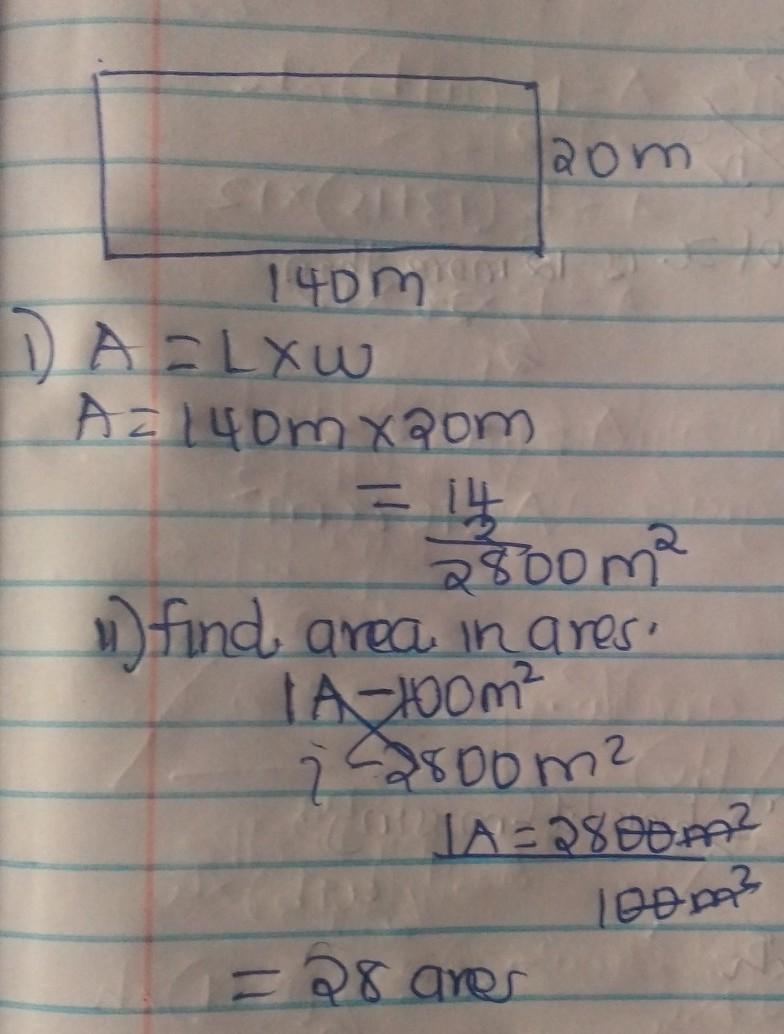 20m
140m
i) A = L x W
A = 140m x 20m
= 14
2
2800m²
ii) find area in ares.
1A - 100m²
? - 2800m²
1A = 2800m²
100m²
= 28 ares